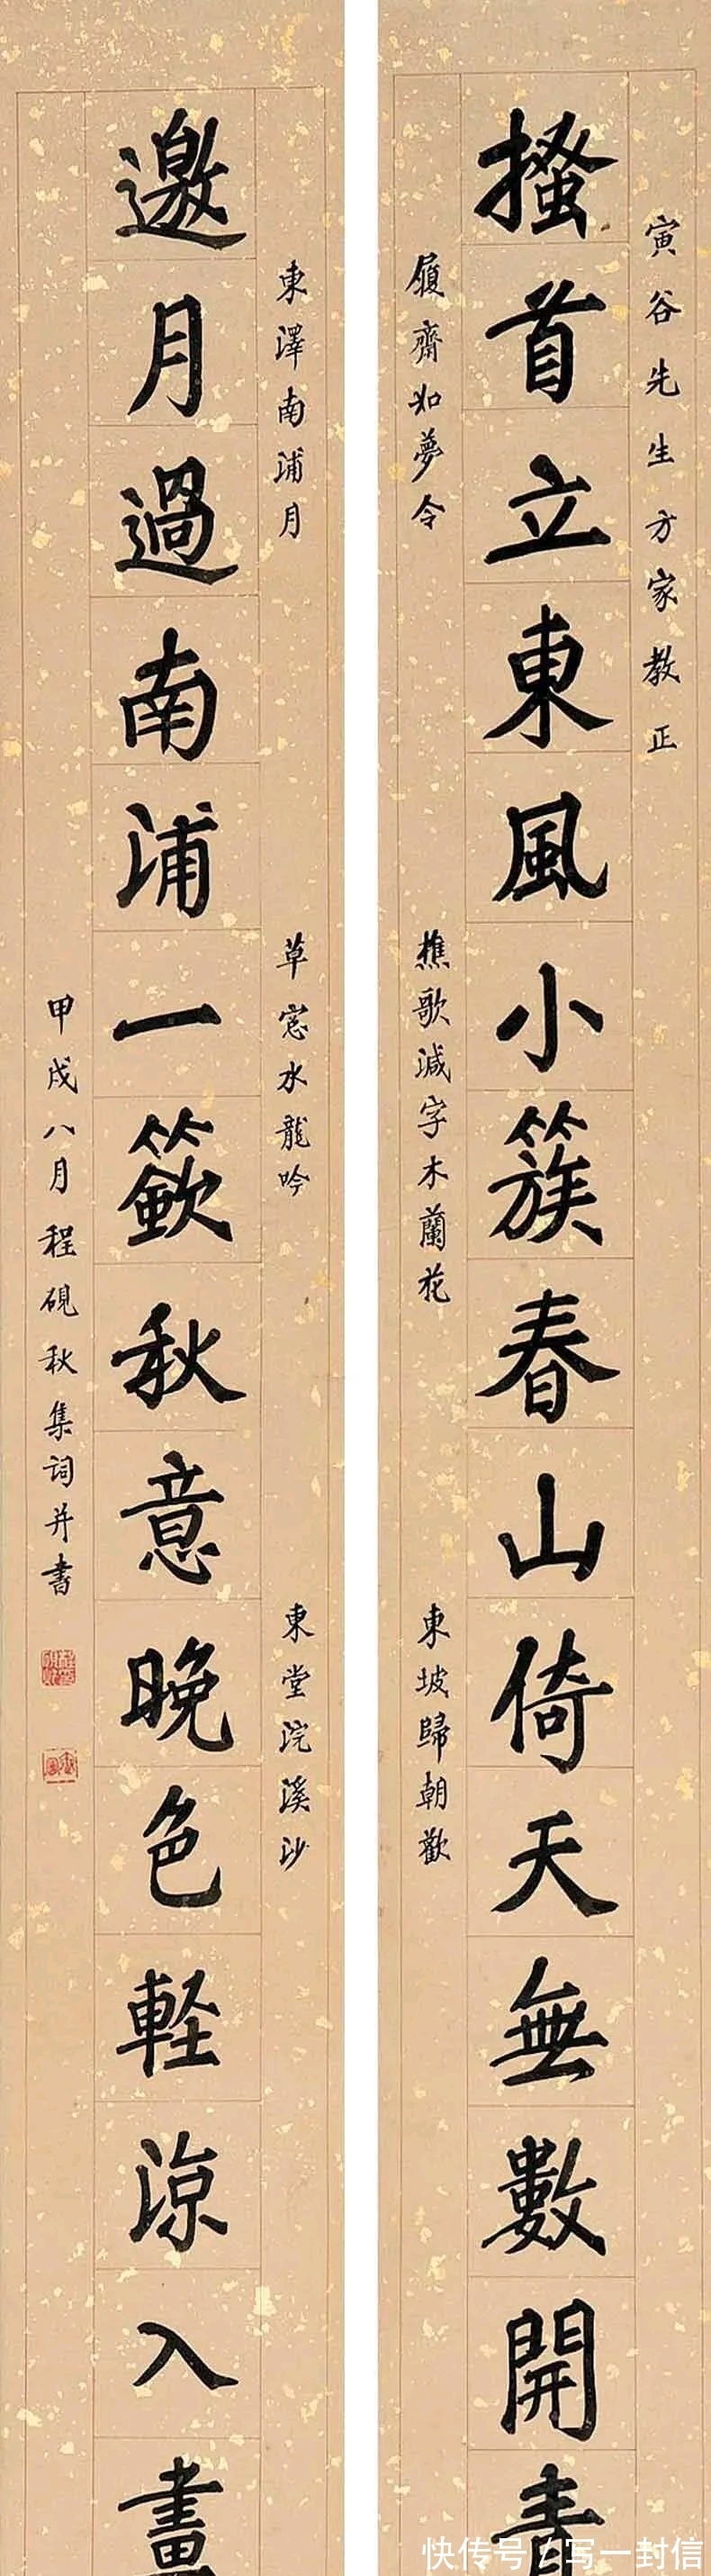 寅谷先生方家教正
搔首立東風小簇春山倚天無數開青
履齋如夢令
樵歌減字木蘭花
東坡歸朝歡
東澤南浦月
草窓水龍吟
東堂浣溪沙
邀月過南浦一籨秋意晚色軽涼入畫
甲戌八月程硯秋集詞并書
快传号 / 写一封信